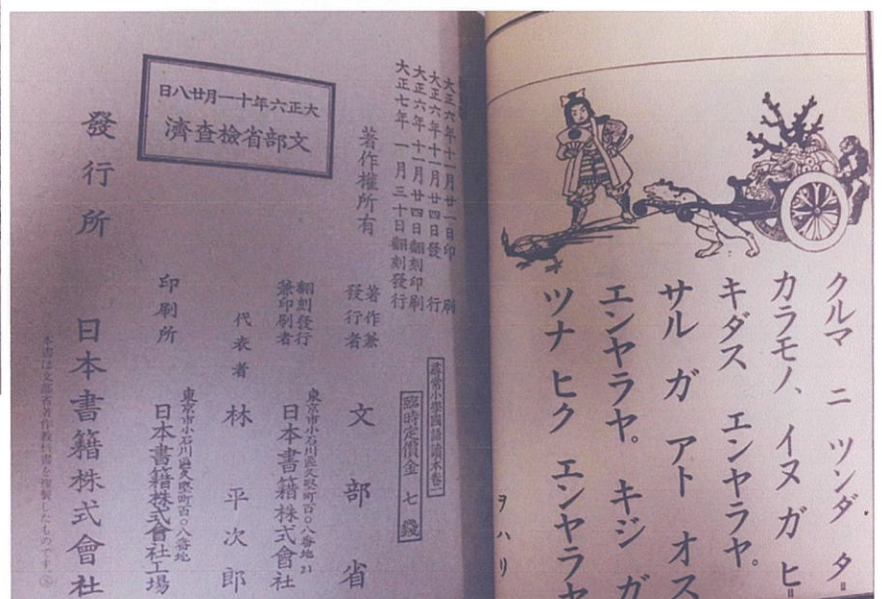 クルマ ニ ツンダ タ〃
カラモノ、イヌ ガ ヒ〃
キダス エンヤラヤ。
サル ガ アト オス
エンヤラヤ。 キジ ガ
ツナ ヒク エンヤラヤ
ヲハリ
大正六年十一月廿一日印刷
大正六年十一月廿四日發行
大正六年十一月廿四日翻刻印刷
大正七年一月三十日翻刻發行
尋常小學國語讀本卷二
臨時定價金七錢
著作權所有
著作兼
發行者
文部省
翻刻發行
兼印刷者
東京市小石川區久堅町百〇八番地
日本書籍株式會社
代表者 林 平次郎
印刷所
東京市小石川區久堅町百〇八番地
日本書籍株式會社工場
大正六年十一月廿八日
文部省檢查濟
發行所 日本書籍株式會社
本書は文部省著作教科書を複製したものです。